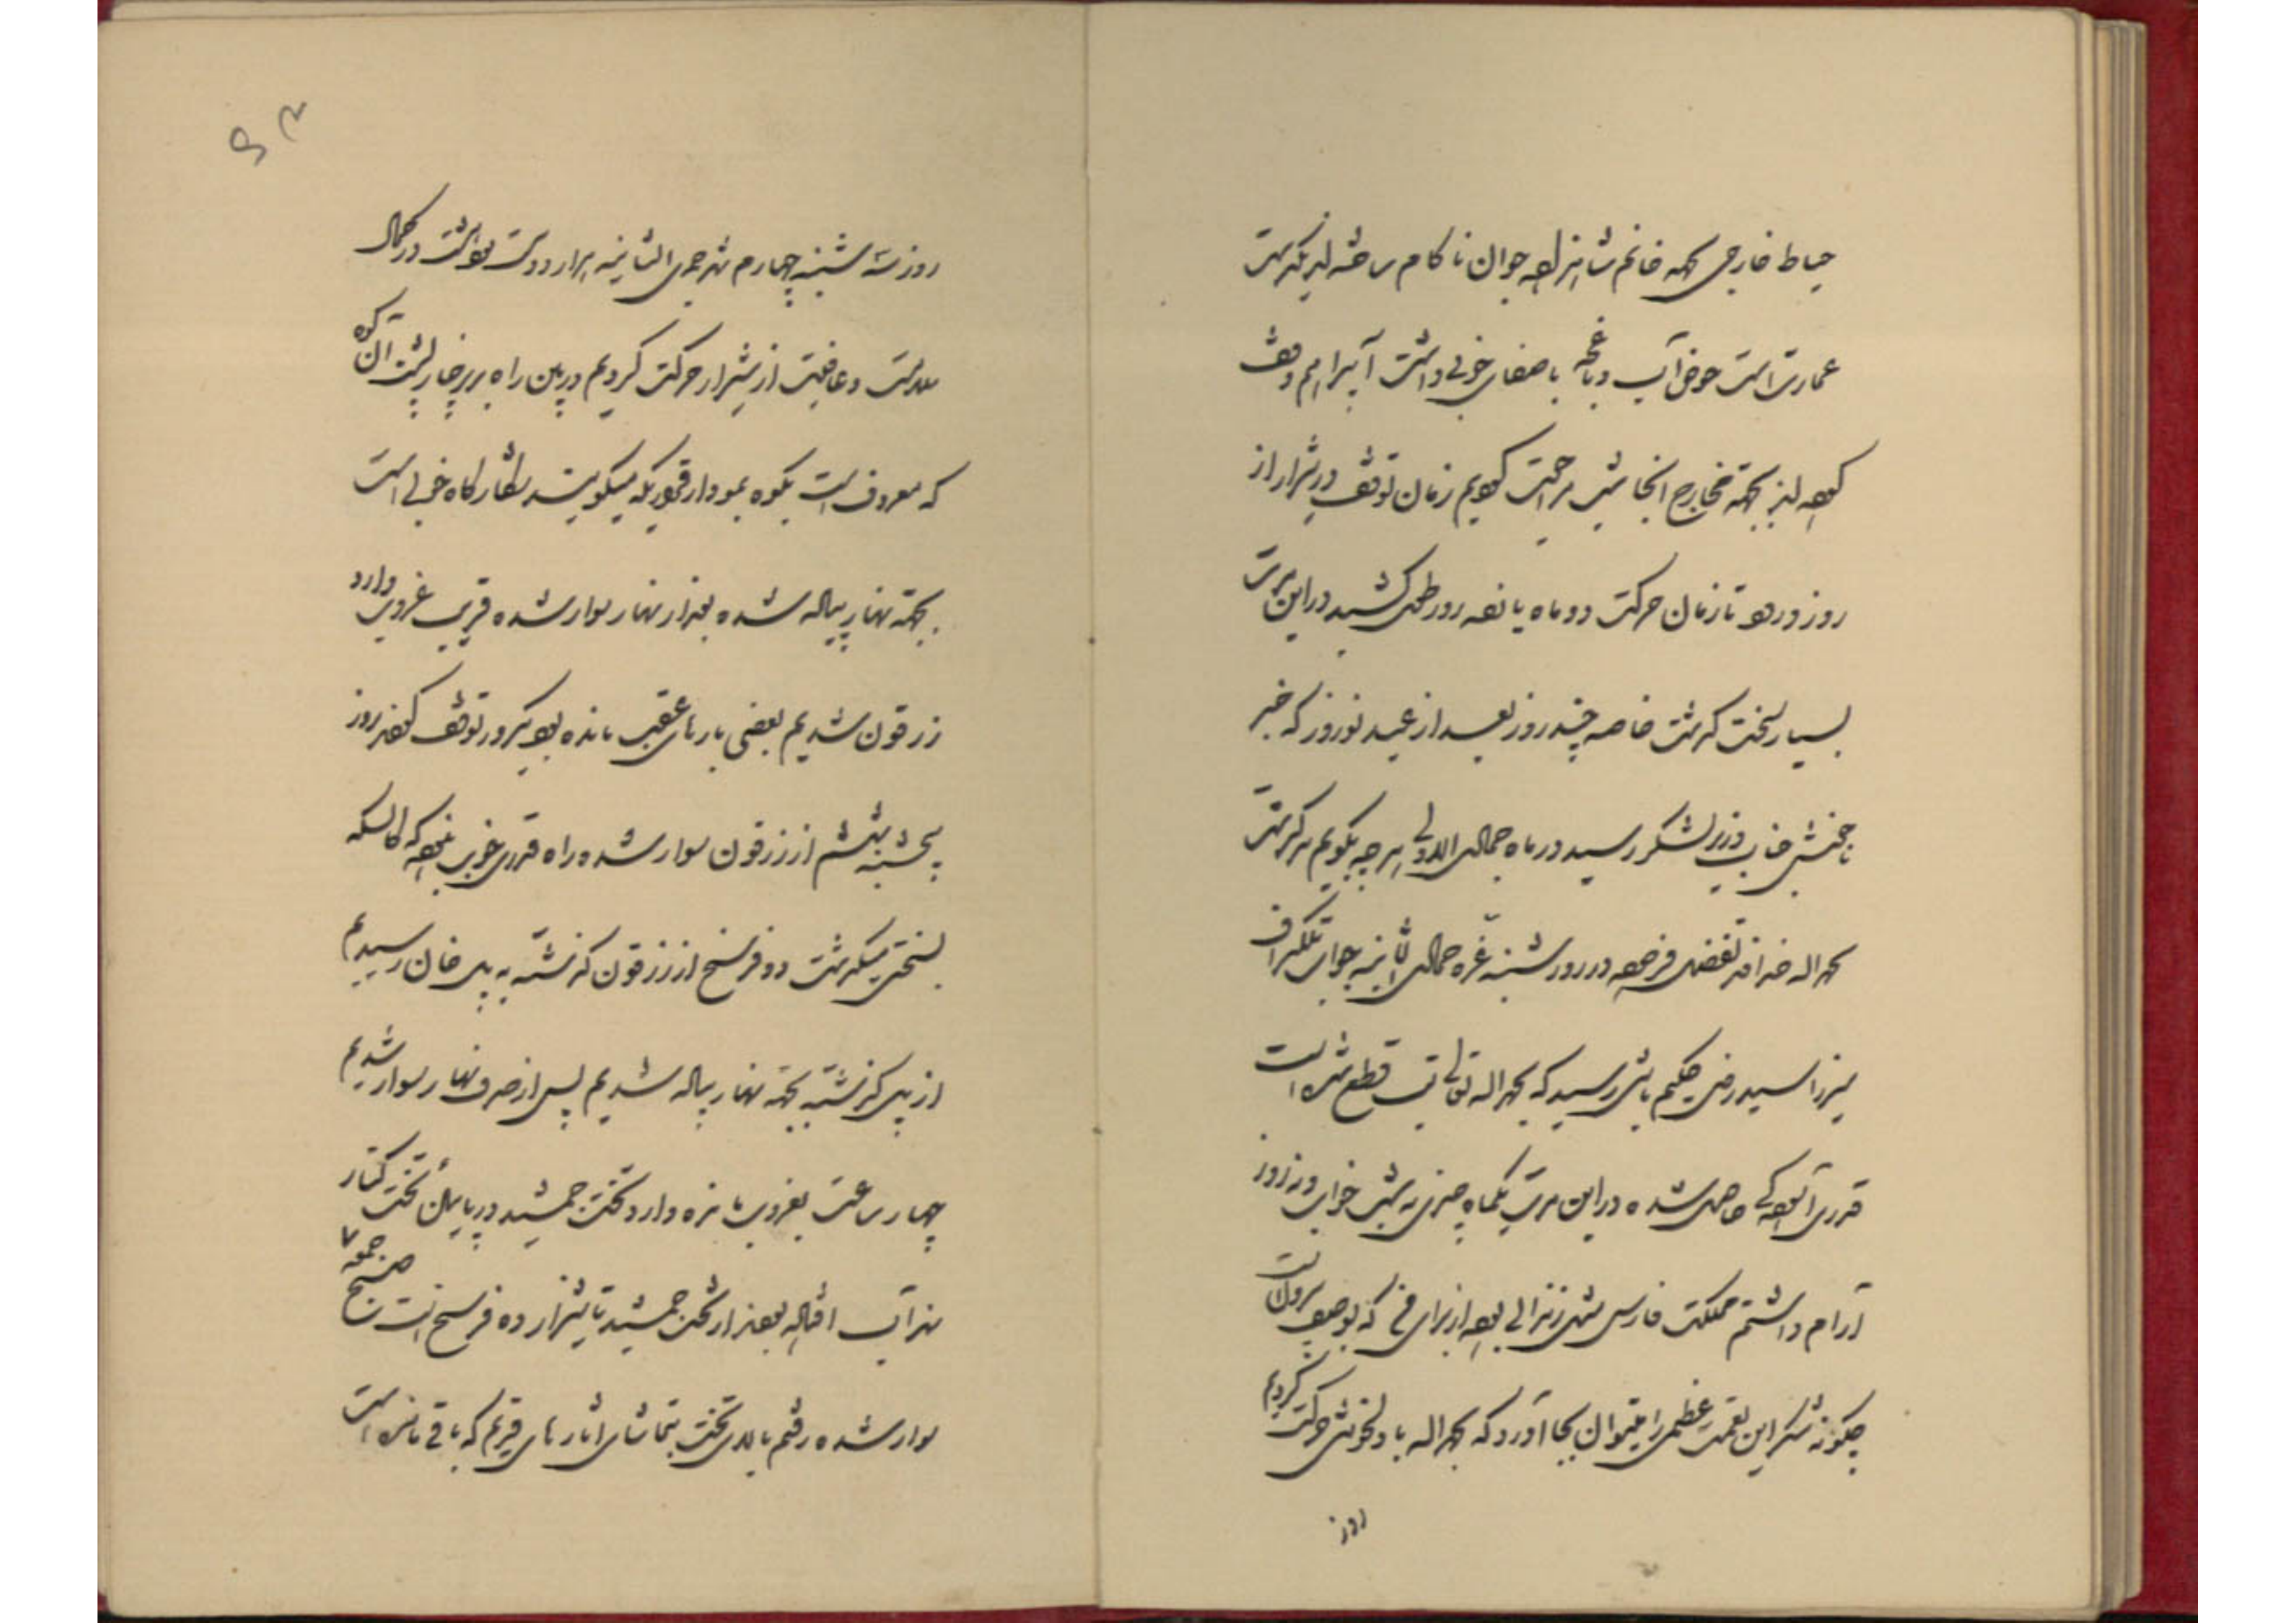 حیاط خارجی بجهة خانم شاهزاده جوان ناکام ساخته اند یکدست
عمارت است حوض آب و باغچه با صفای خوبی داشت آنرا هم وقف
نموده اند بجهة مخارج انجا شب مراجعت نمودیم زمان توقف در شیراز از
روز ورود تا زمان حرکت دو ماه پانزده روز طول کشید در این مدت
بسیار سخت گذشت خاصه چند روز بعد از عید نوروز که خبر
ناخوشی جناب وزیر لشکر رسید در ماه جمادی الاولی هرچه بگویم کم گفته‌ام
بحمدالله خداوند تفضل فرموده در روز شنبه غره جمادی الثانیه جواب تلگراف
میرزا سید رضی حکیم باشی رسید که بحمدالله تعالی تب قطع شده است
قدری آسودگی حاصل شده در این مدت یکماه چیزی نه شب خواب و نه روز
آرام داشتم مملکت فارس مثل زندانی بود از برای من که بوصف
چگونه شکر این نعمت عظمی را میتوان بجا آورد که بحمدالله با دلخوشی حرکت کردیم
روز
روز سه شنبه چهارم شهر جمادی الثانیه هزار و دویست در کمال
سلامت و عافیت از شیراز حرکت کردیم در بین راه پشت آن کوه
که معروف است بکوه میگویند شکارگاه خوبی است
بجهة نهار پیاده شده بعد از نهار سوار شده قریب غروب وارد
زرقون شدیم بعضی بارهای عقب مانده بود یکروز توقف نموده روز
پنجشنبه ششم از زرقون سوار شده راه قدری خوب نبود که کالسکه
بسختی میگذشت دو فرسخ از زرقون گذشته به پل خان رسیدیم
از پل گذشته بجهة نهار پیاده شدیم پس از صرف نهار سوار شدیم
چهار ساعت بغروب مانده وارد تخت جمشید در پایین تخت کنار
نهر آب افتاده بودند از تخت جمشید تا شیراز ده فرسخ است صبح جمعه ۷
سوار شده رفتم بالای تخت بتماشای اثارهای قدیم که باقی مانده است